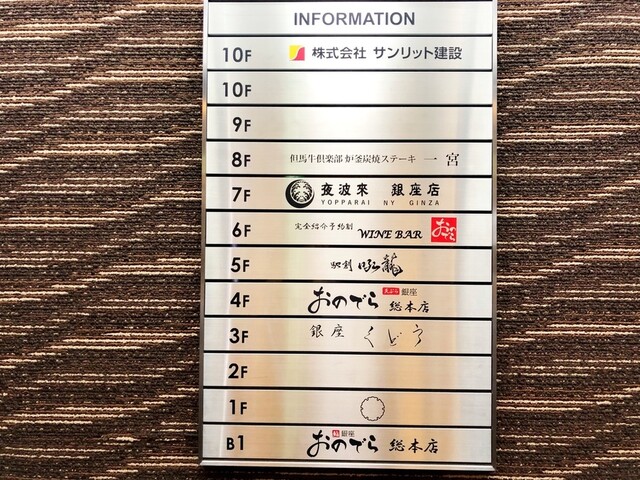 INFORMATION
10F 株式会社 サンリット建設
10F
9F
8F 但馬牛倶楽部 炉釜炭焼ステーキ 一宮
7F 夜波來 銀座店
YOPPARAI NY GINZA
6F 完全紹介予約制 WINE BAR おのでら
5F 龍
4F 銀座 おのでら 総本店
3F 銀座 くどう
2F
1F
B1 鮨 銀座 おのでら 総本店